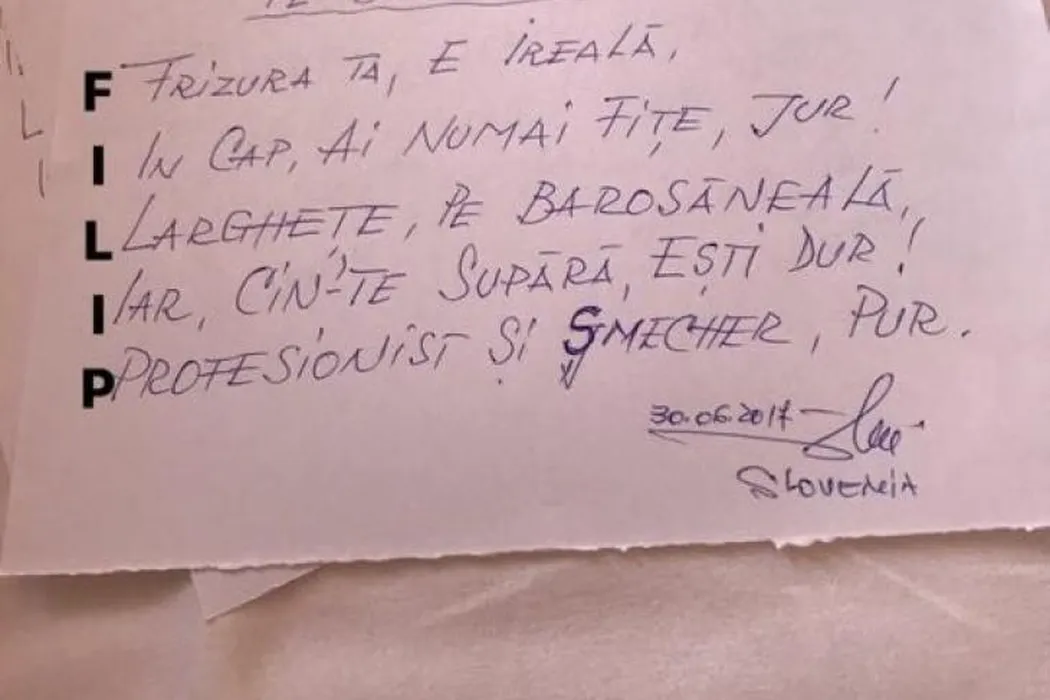 F FRIZURA TA, E IREALĂ,
I IN CAP, AI NUMAI FIȚE, JUR!
L LARGHEȚE, PE BAROSĂNEALĂ,
I IAR, CIN'-TE SUPĂRĂ, EȘTI DUR!
P PROFESIONIST ȘI ȘMECHER, PUR.
30.06.2017
SLOVENIA